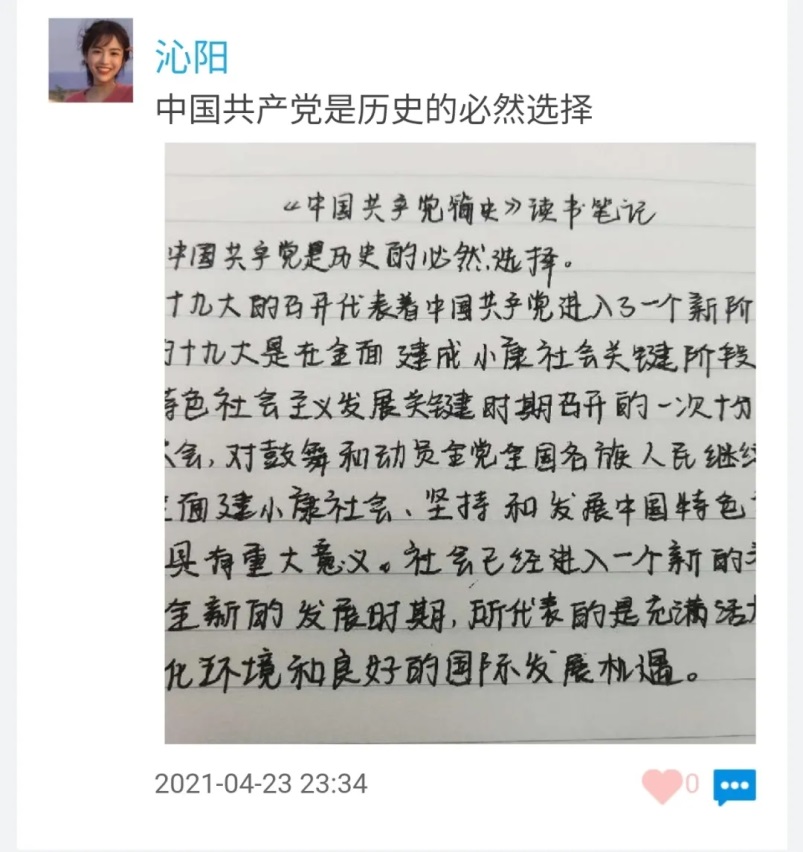 沁阳
中国共产党是历史的必然选择
《中国共产党简史》读书笔记
中国共产党是历史的必然选择。
十九大的召开代表着中国共产党进入了一个新阶
十九大是在全面建成小康社会关键阶段
特色社会主义发展关键时期召开的一次十分
大会,对鼓舞和动员全党全国各族人民继续
全面建小康社会、坚持和发展中国特色
具有重大意义。社会已经进入一个新的
全新的发展时期,所代表的是充满活力
化环境和良好的国际发展机遇。
2021-04-23 23:34
0